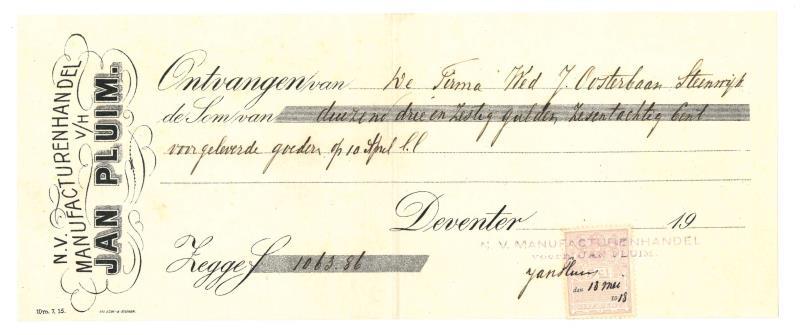 N.V.
MANUFACTURENHANDEL
V/H
JAN PLUIM.
Ontvangen van de Firma Wed J. Oosterbaan Steenwijk
de Som van duizend drie en Zestig gulden Zesentachtig Cent
voor geleverde goederen op 10 April l.l
Deventer 19
N. V. MANUFACTURENHANDEL
VOORH. JAN PLUIM.
Zegge f 1063.86
Jan Pluim
den 18 Mei
1918
10m. 7. 15.